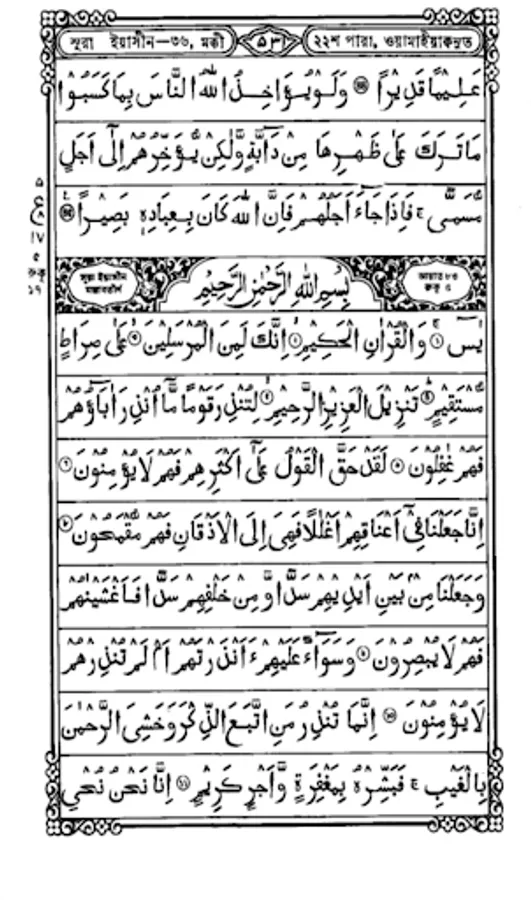 সূরা ইয়াসীন–৩৬, মক্কী ৫৩১ ২২শ পারা, ওয়ামাইয়াকনুত
عَلِيمًا قَدِيرًا ۝ وَلَوْ يُؤَاخِذُ اللهُ النَّاسَ بِمَا كَسَبُوا
مَا تَرَكَ عَلَىٰ ظَهْرِهَا مِنْ دَابَّةٍ وَّلٰكِنْ يُّؤَخِّرُهُمْ إِلٰٓى أَجَلٍ
مُّسَمًّى ۚ فَإِذَا جَآءَ أَجَلُهُمْ فَإِنَّ اللهَ كَانَ بِعِبَادِهٖ بَصِيْرًا
সূরা ইয়াসীন بِسْمِ اللهِ الرَّحْمٰنِ الرَّحِيْمِ আয়াত ৮৩
মক্কাবতীর্ণ রুকূ ৫
يٰسٓ ۝ وَالْقُرْاٰنِ الْحَكِيْمِ ۝ اِنَّكَ لَمِنَ الْمُرْسَلِيْنَ ۝ عَلٰى صِرَاطٍ
مُّسْتَقِيْمٍ ۝ تَنْزِيْلَ الْعَزِيْزِ الرَّحِيْمِ ۝ لِتُنْذِرَ قَوْمًا مَّآ اُنْذِرَ اٰبَآؤُهُمْ
فَهُمْ غٰفِلُوْنَ ۝ لَقَدْ حَقَّ الْقَوْلُ عَلٰٓى اَكْثَرِهِمْ فَهُمْ لَا يُؤْمِنُوْنَ ۝
اِنَّا جَعَلْنَا فِيْٓ اَعْنَاقِهِمْ اَغْلٰلًا فَهِيَ اِلَى الْاَذْقَانِ فَهُمْ مُّقْمَحُوْنَ ۝
وَجَعَلْنَا مِنْۢ بَيْنِ اَيْدِيْهِمْ سَدًّا وَّمِنْ خَلْفِهِمْ سَدًّا فَاَغْشَيْنٰهُمْ
فَهُمْ لَا يُبْصِرُوْنَ ۝ وَسَوَآءٌ عَلَيْهِمْ ءَاَنْذَرْتَهُمْ اَمْ لَمْ تُنْذِرْهُمْ
لَا يُؤْمِنُوْنَ ۝ اِنَّمَا تُنْذِرُ مَنِ اتَّبَعَ الذِّكْرَ وَخَشِيَ الرَّحْمٰنَ
بِالْغَيْبِ ۚ فَبَشِّرْهُ بِمَغْفِرَةٍ وَّاَجْرٍ كَرِيْمٍ ۝ اِنَّا نَحْنُ نُحْيِ